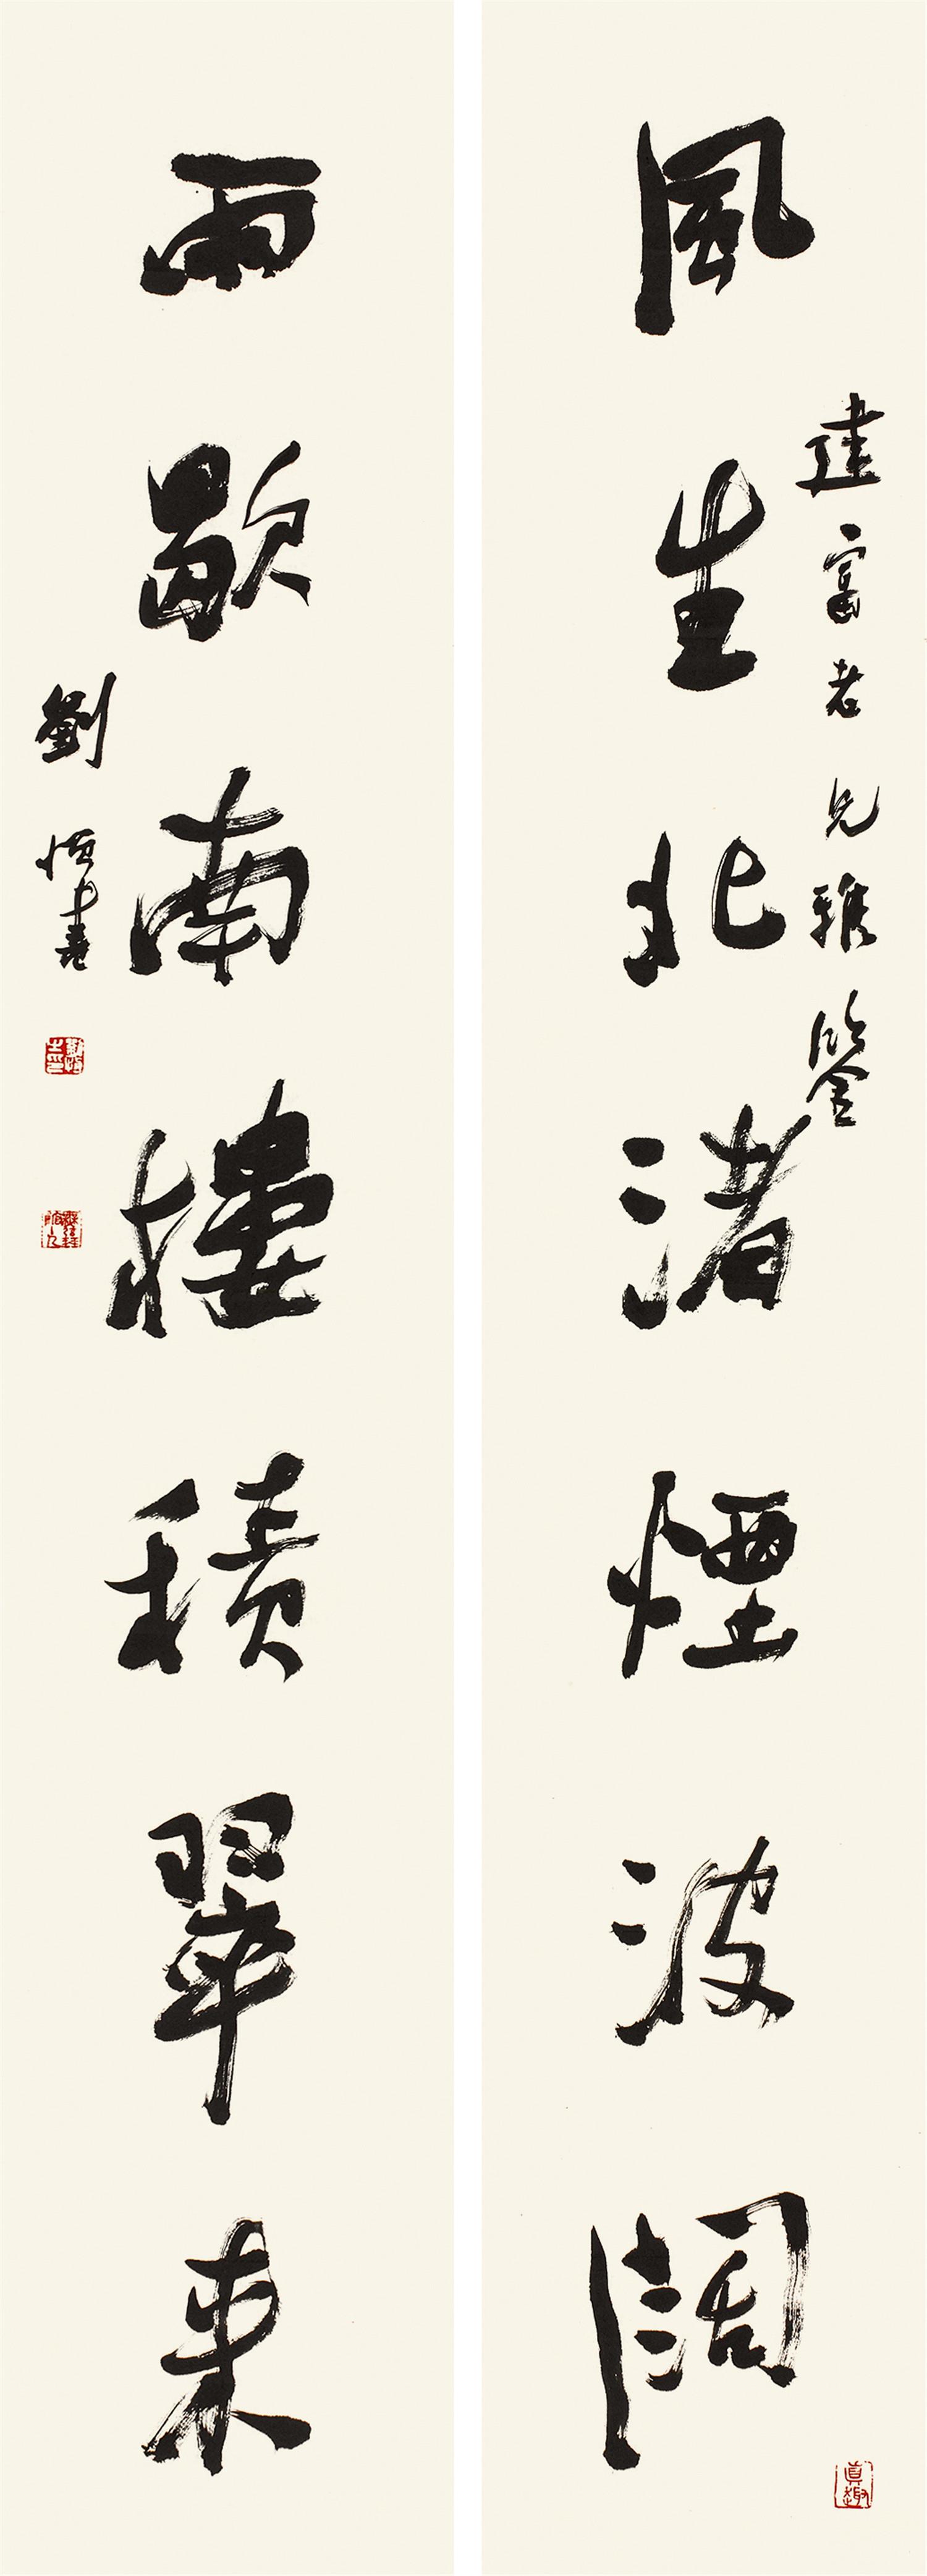 風生北渚煙波闊
建富老兄雅鑒
雨歇南樓積翠來
劉恒書
真趣